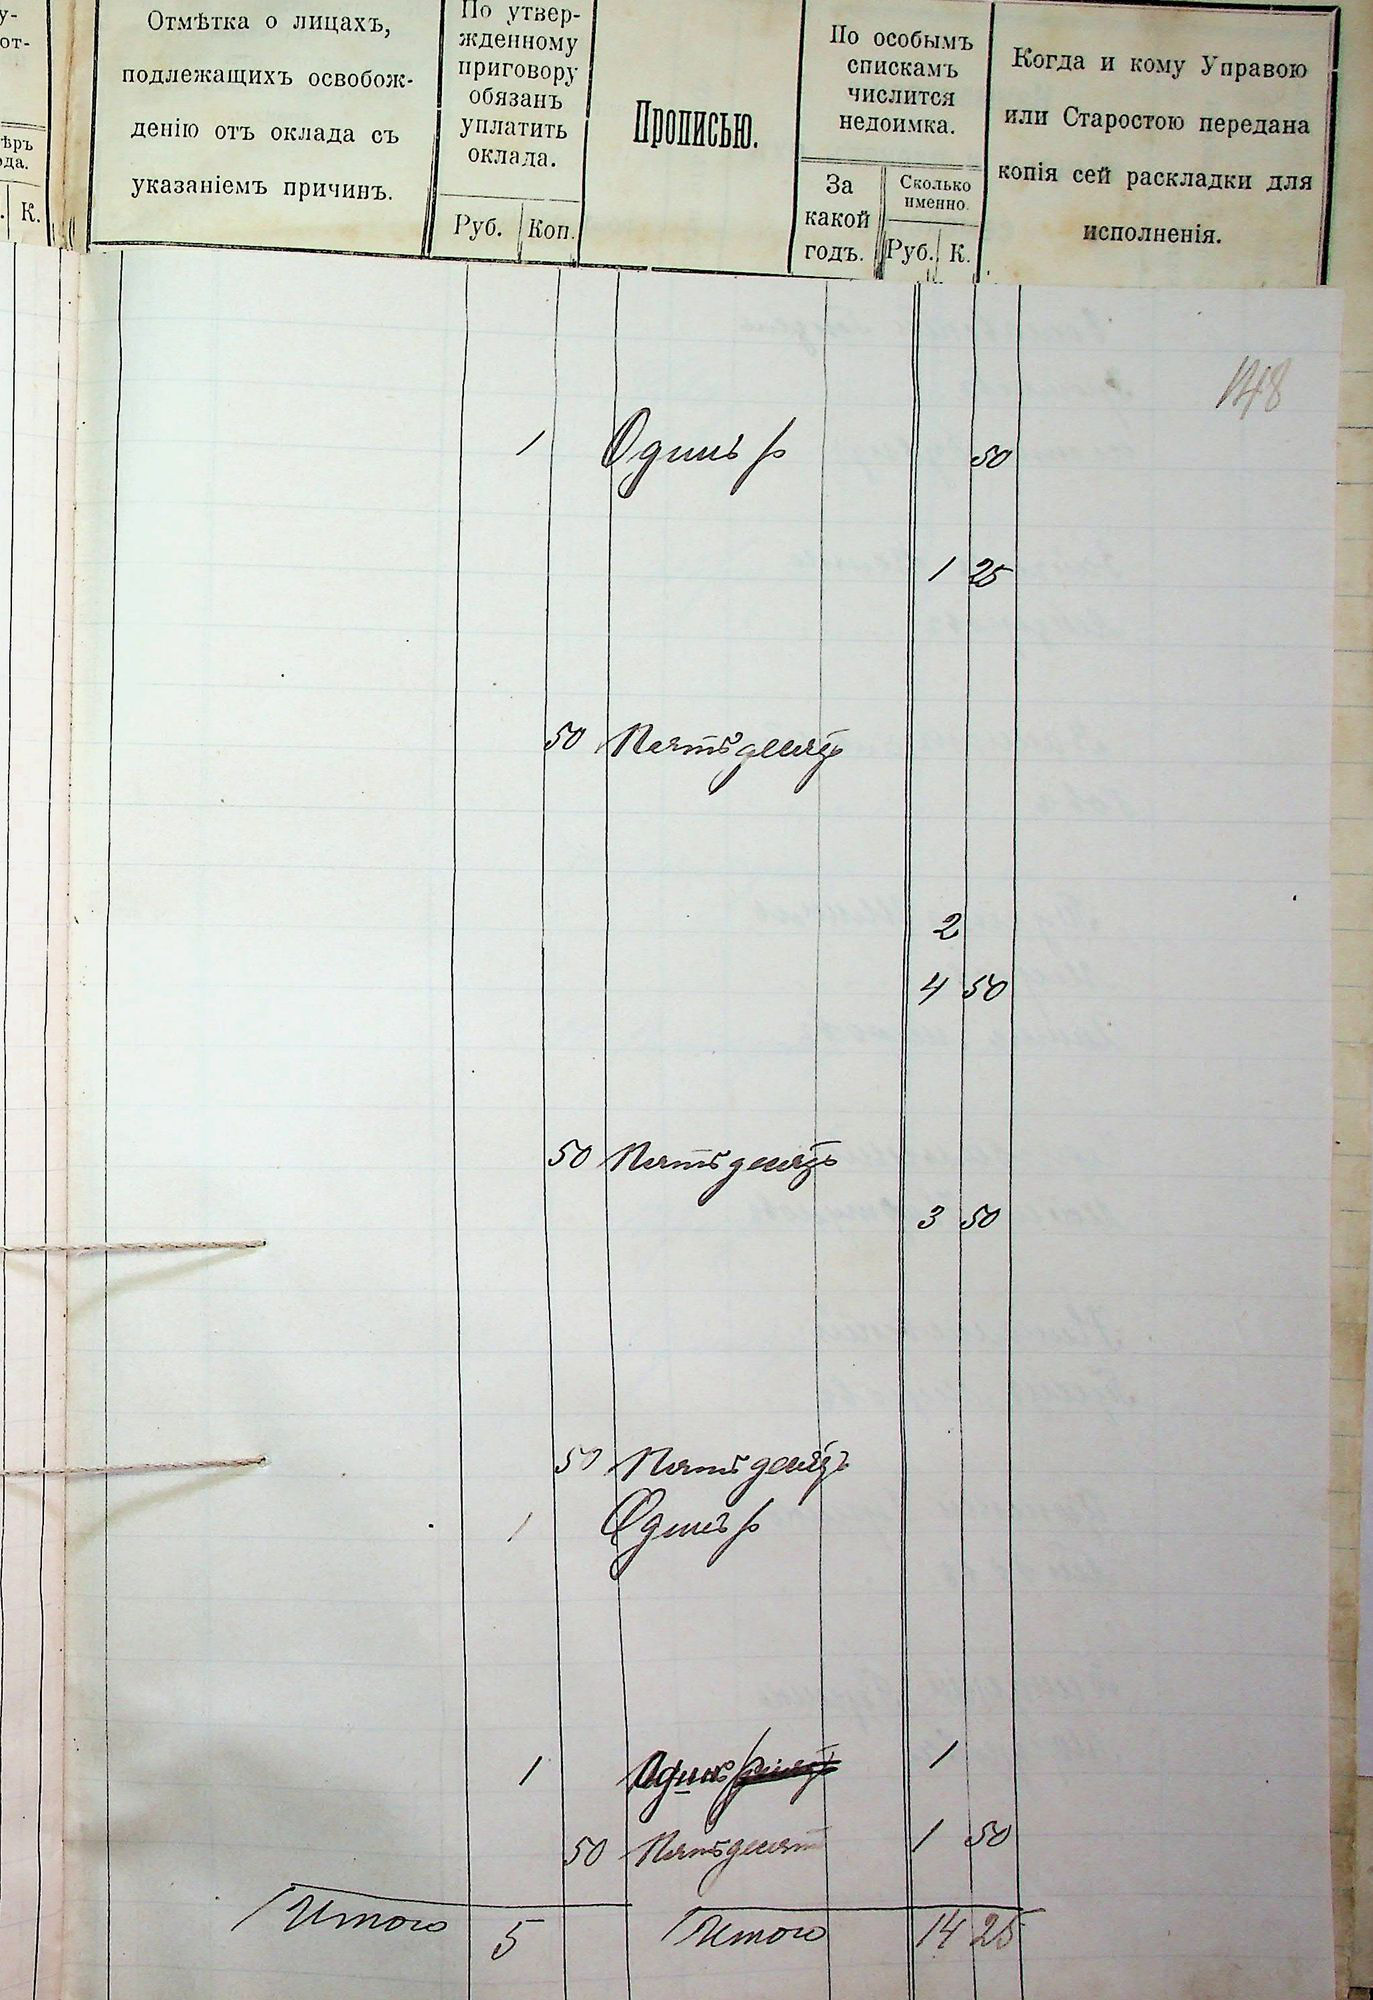 у-
от-
ѣръ
ода.
К.
Отмѣтка о лицахъ,
подлежащихъ освобож-
денію отъ оклада съ
указаніемъ причинъ.
По утвер-
жденному
приговору
обязанъ
уплатить
оклада.
Руб. Коп.
Прописью.
По особымъ
спискамъ
числится
недоимка.
За
какой
годъ.
Сколько
именно.
Руб. К.
Когда и кому Управою
или Старостою передана
копія сей раскладки для
исполненія.
148
1 Одинъ р 50
1 25
50 Пятьдесятъ
2
4 50
50 Пятьдесятъ
3 50
50 Пятьдесятъ
1 Одинъ р
1 Одинъ 1
50 Пятьдесят 1 50
Итого 5 Итого 14 25